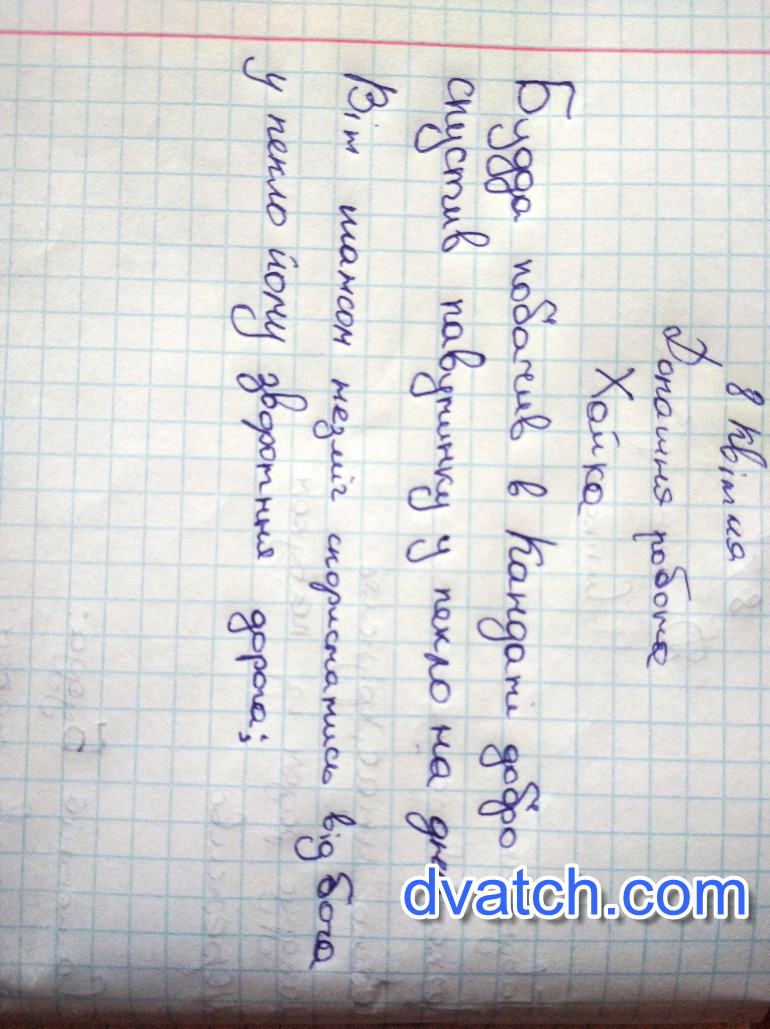 8 квітня
Домашня робота
Хойка
Будда побачив в Кандаті добро
спустив павутинку у пекло на дн
Він шансом незміг скористатись від бога
у пекло йому зворотння дорога;
dvatch.com